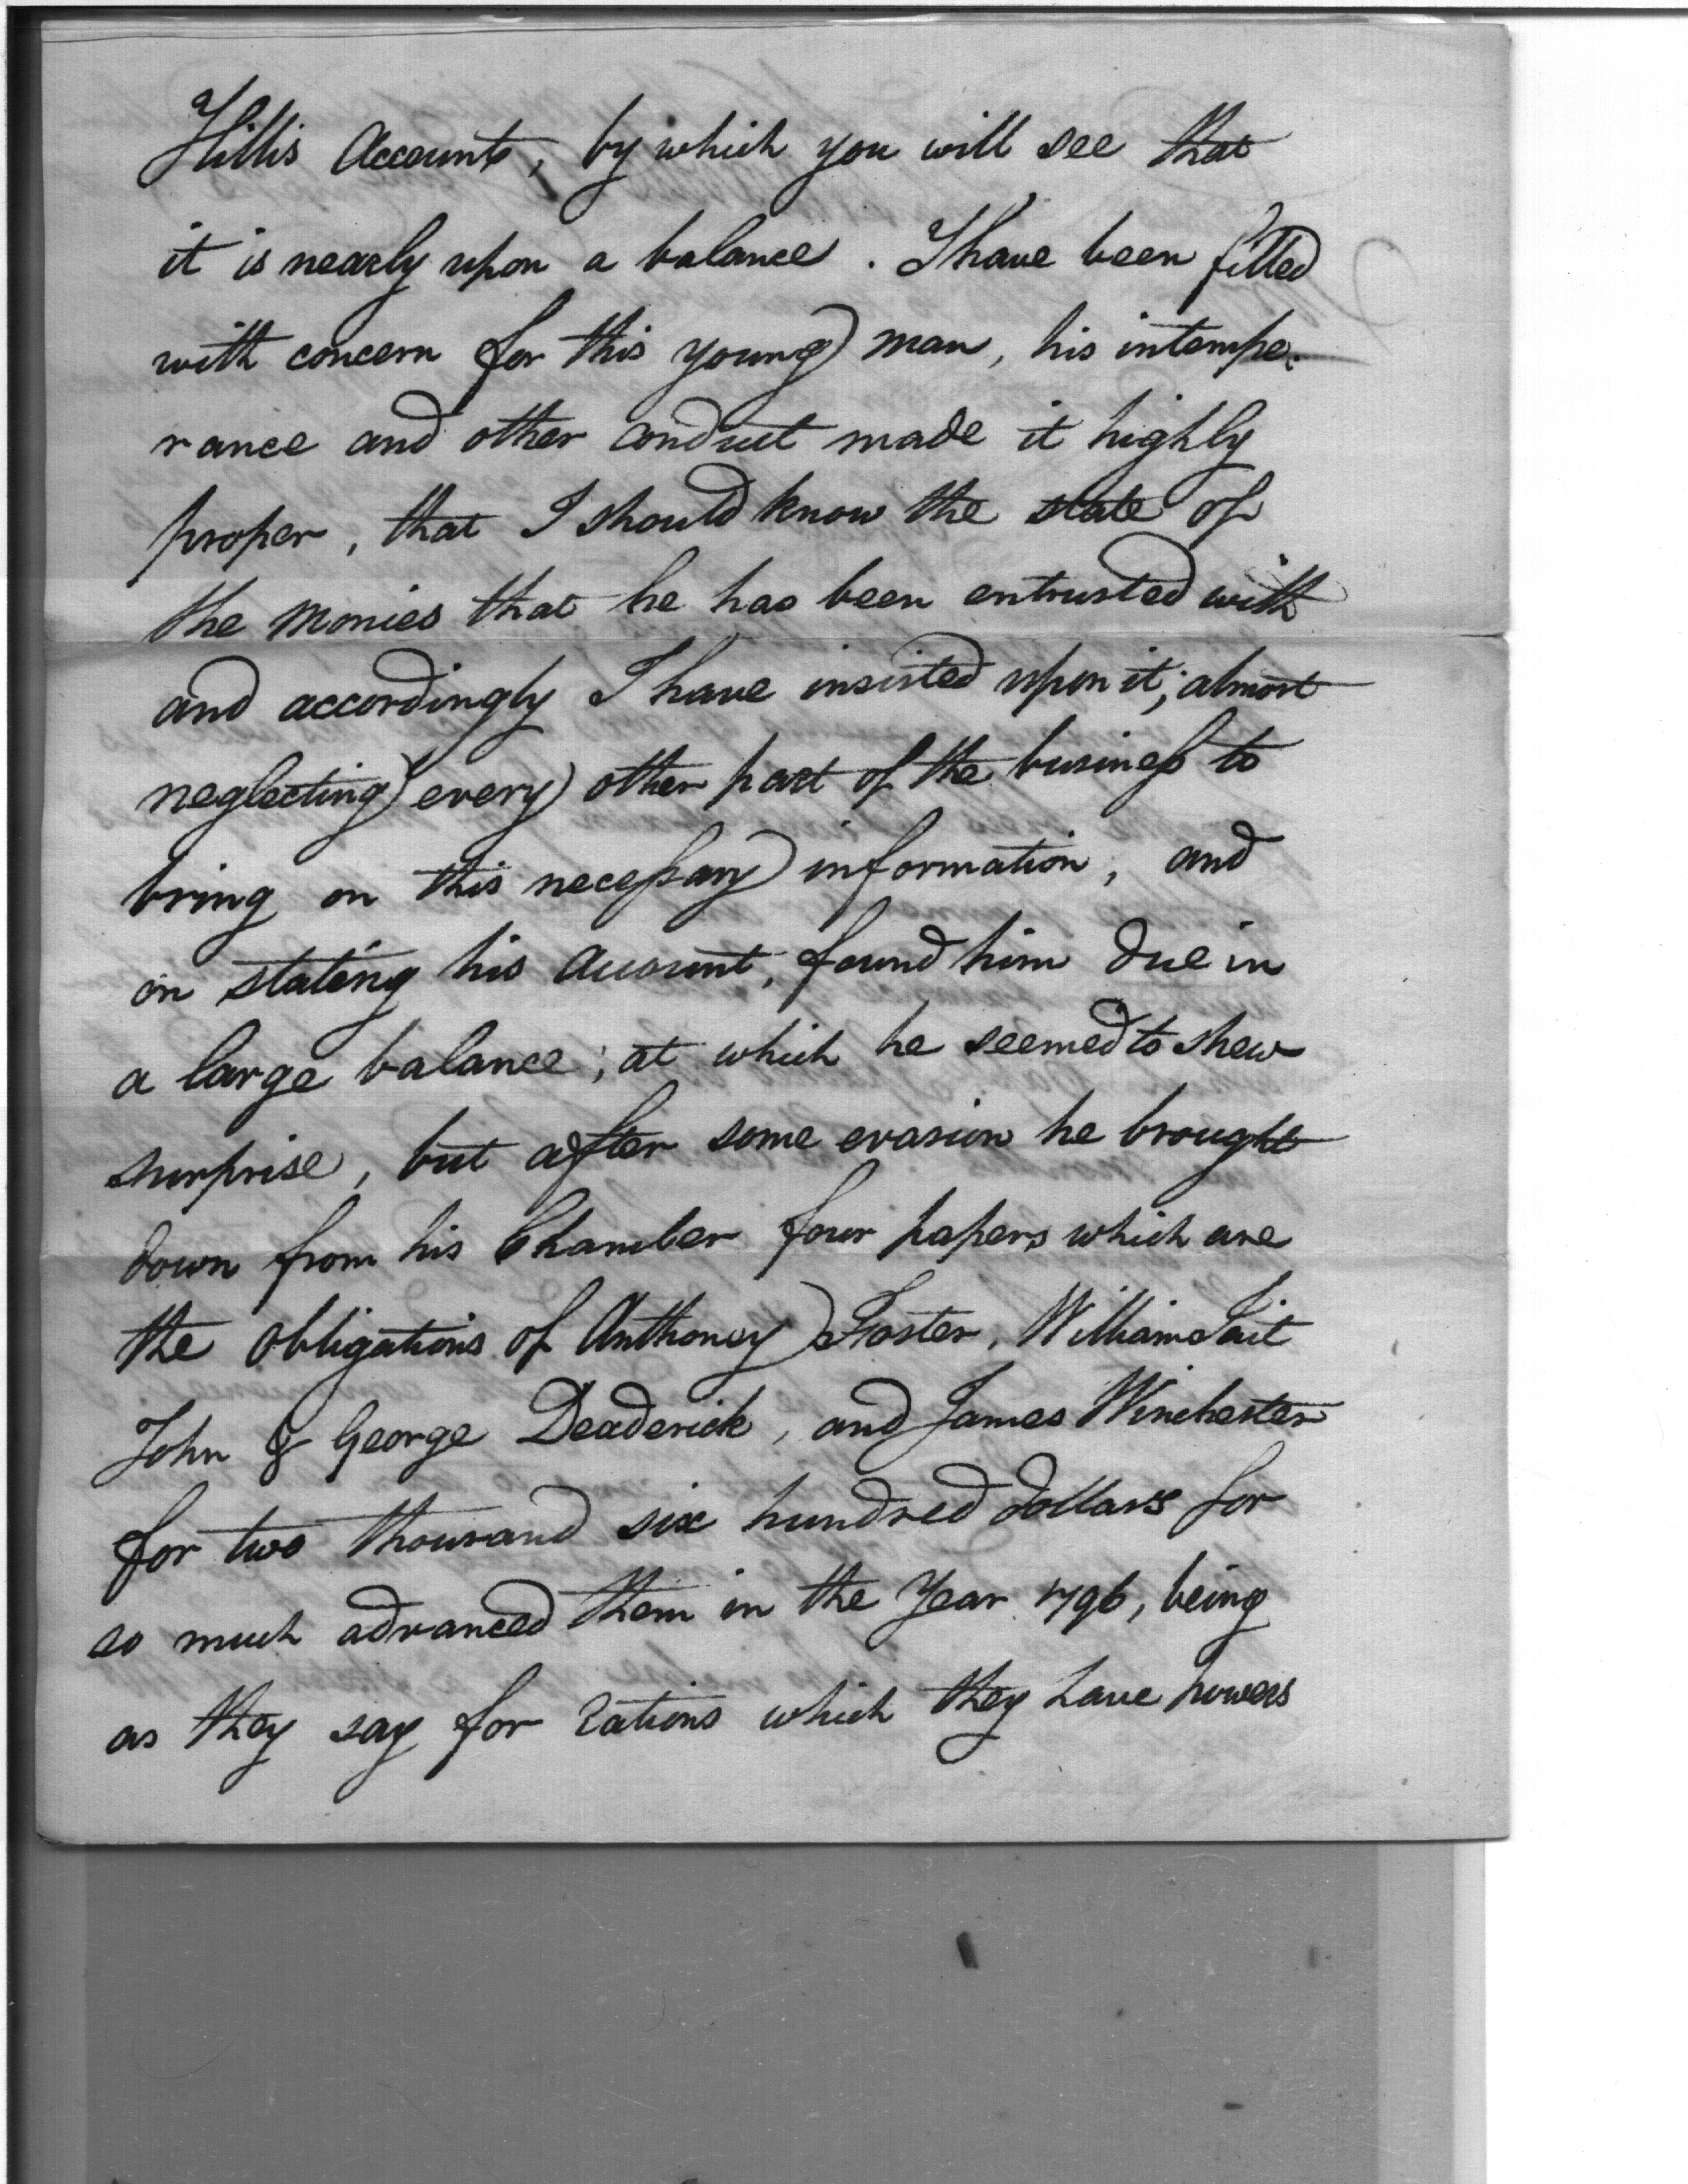 Hillis Accounts, by which you will see that
it is nearly upon a balance. I have been filled
with concern for this young man, his intempe.
rance and other conduct made it highly
proper, that I should know the state of
the monies that he has been entrusted with
and accordingly I have insisted upon it; almost
neglecting every other part of the business to
bring on this necessary information, and
on stating his account, found him due in
a large balance; at which he seemed to shew
surprise, but after some evasion he brought
down from his Chamber four papers which are
the obligations of Anthoney Foster, William Tait
John & George Deaderick, and James Winchester
for two thousand six hundred dollars for
so much advanced them in the Year 1796, being
as they say for rations which they have powers